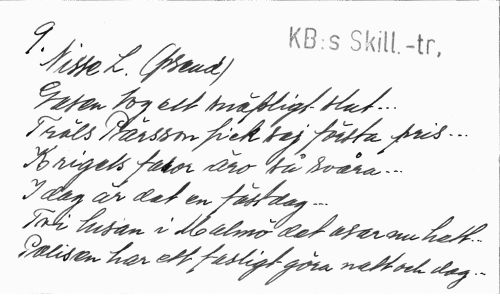 9.
KB:s Skill.-tr.
Nisse L. (pseud)
Gasen tog ett snöpligt slut...
Tråls Pärsson fick sig första pris...
Krigets fasor äro så svåra...
I dag är det en fästdag...
Tori husan i Malmö det var nu hett..
Polisen har ett fasligt göra natt och dag...